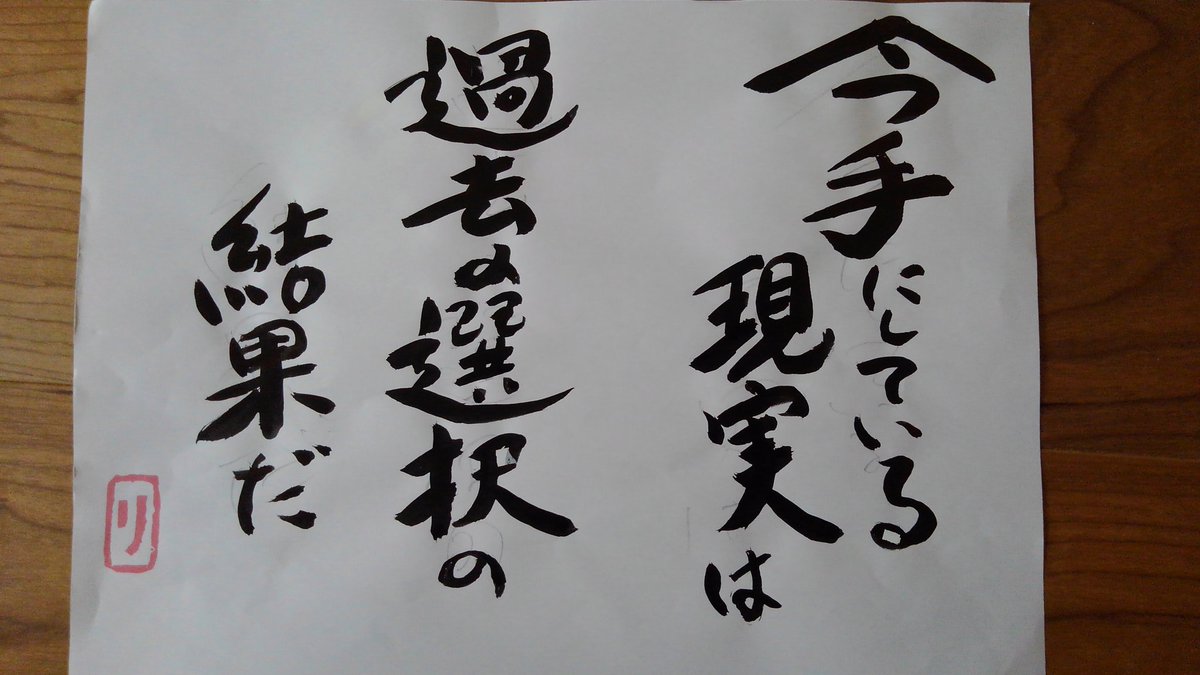 今手にしている
現実は
過去の選択の
結果だ
リ